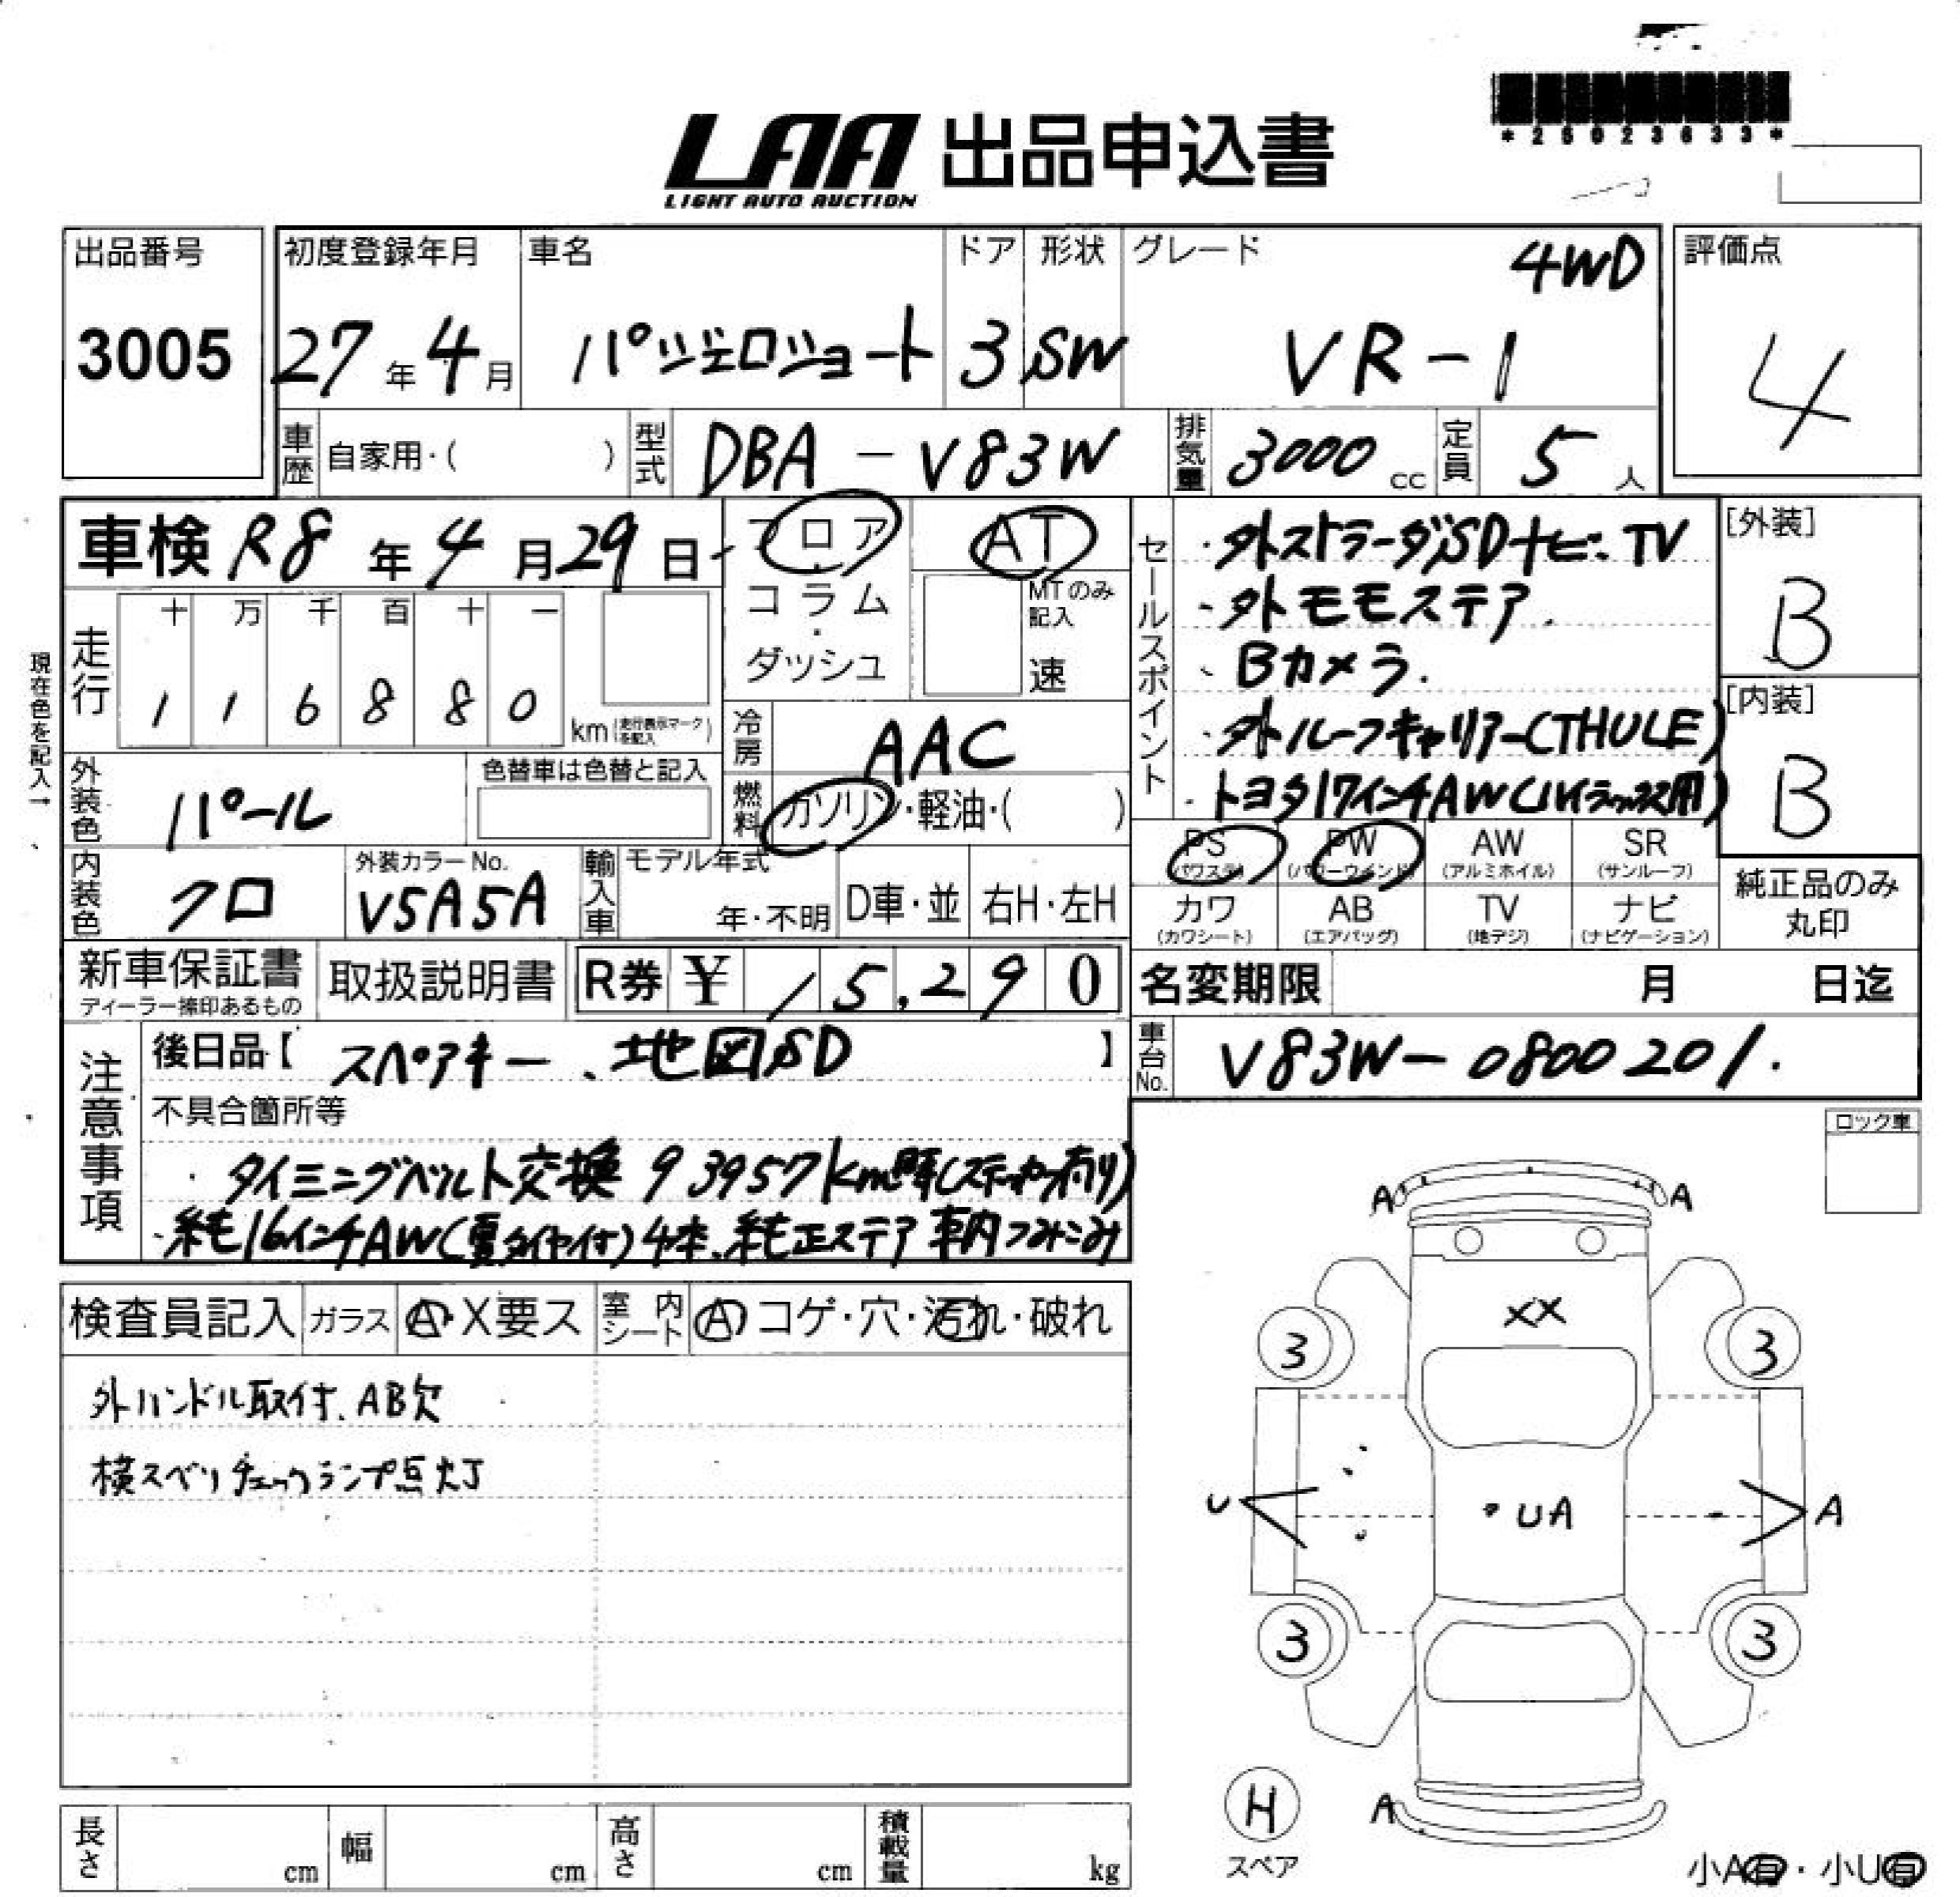 *25023633*
LAA 出品申込書
LIGHT AUTO AUCTION
出品番号 3005
初度登録年月 27年4月
車名 パジェロショート
ドア 3
形状 SW
グレード 4WD
VR-1
評価点 4
車歴 自家用・( )
型式 DBA-V83W
排気量 3000 cc
定員 5 人
車検 R8年4月29日
フロア・コラム・ダッシュ
AT
MTのみ記入
速
走行 十 万 千 百 十 一
1 1 6 8 8 0 km (走行表示マークを記入)
現在色を記入→
冷房 AAC
燃料 ガソリン・軽油・( )
外装色 パール
色替車は色替と記入
内装色 クロ
外装カラーNo. V5A5A
輸入車 モデル年式 年・不明 D車・並 右H・左H
セールスポイント
・外ストラーダSDナビ、TV
・外モモステア.
・Bカメラ.
・外ルーフキャリアー(THULE)
・トヨタ17インチAW(ハイラックス用)
[外装] B
[内装] B
PS (パワステ) PW (パワーウインド) AW (アルミホイル) SR (サンルーフ)
カワ (カワシート) AB (エアバッグ) TV (地デジ) ナビ (ナビゲーション)
純正品のみ丸印
新車保証書 ディーラー捺印あるもの
取扱説明書
R券 ¥ 15,290
名変期限 月 日迄
車台No. V83W-0800201.
注意事項
後日品【スペアキー、地図SD】
不具合箇所等
・タイミングベルト交換 93957km時(ステッカー有り)
・純正16インチAW(夏タイヤ付)4本、純正ステア車内つみこみ
ロック車
検査員記入 ガラス A・X要ス 室内シート A コゲ・穴・汚れ・破れ
外ハンドル取付、AB欠
横スベリチェックランプ点灯
A A
XX
3 3
U UA A
3 3
H スペア
A
小A有・小U有
長さ cm 幅 cm 高さ cm 積載量 kg